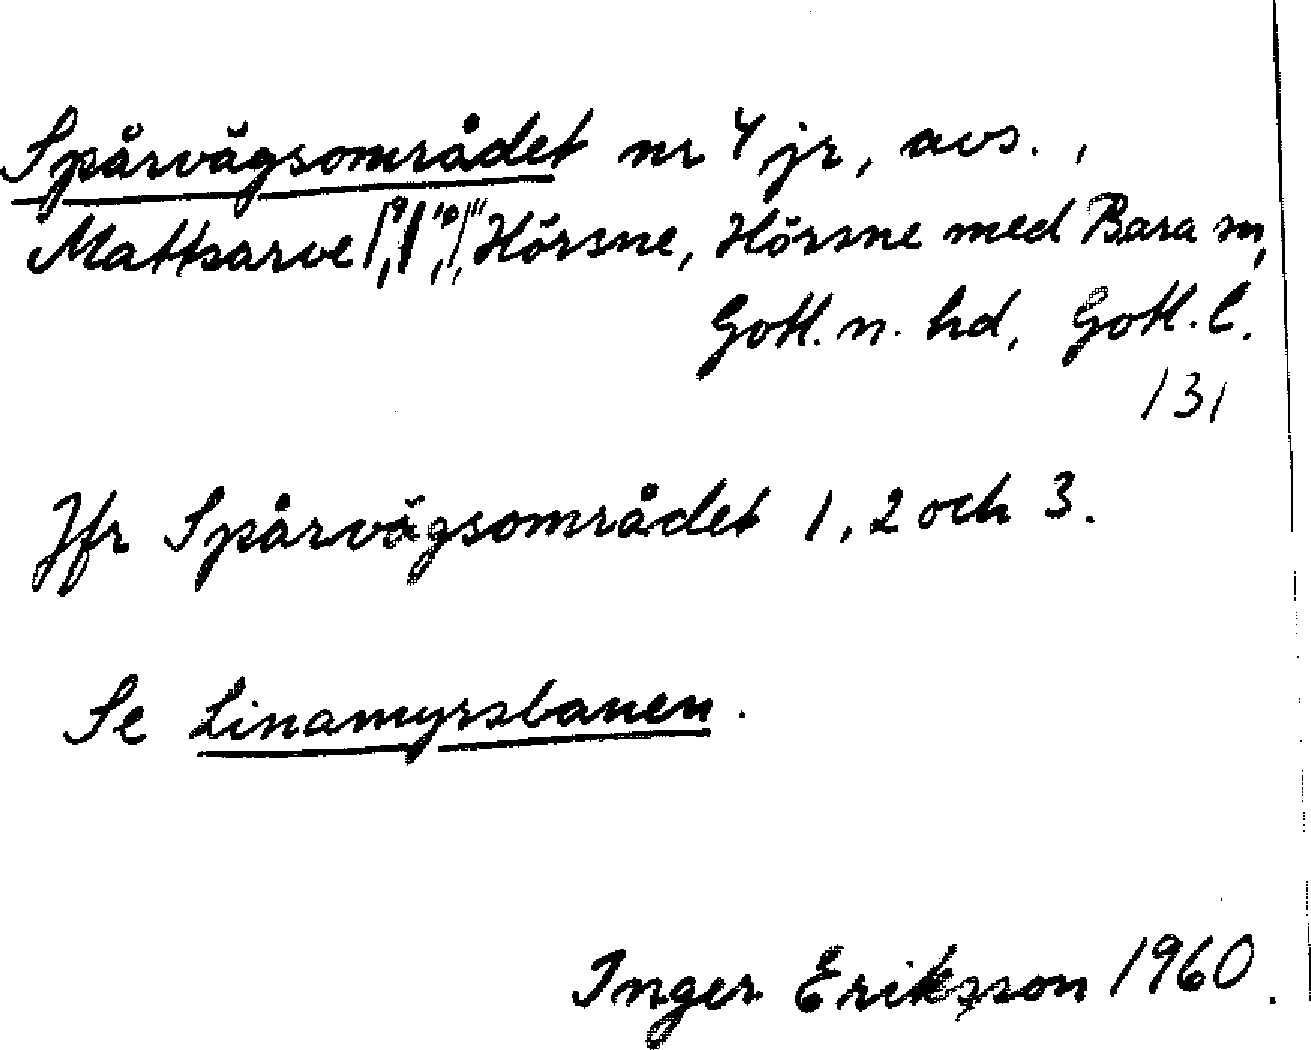 Spårvägsområdet nr 4 jr, avs.,
Mattsarve 1⁹, 1¹⁰, 1¹¹, Hörsne, Hörsne med Bara sn,
Gotl. n. hd, Gotl. l.
131
Jfr Spårvägsområdet 1, 2 och 3.
Se Linamyrsbanen.
Inger Eriksson 1960.